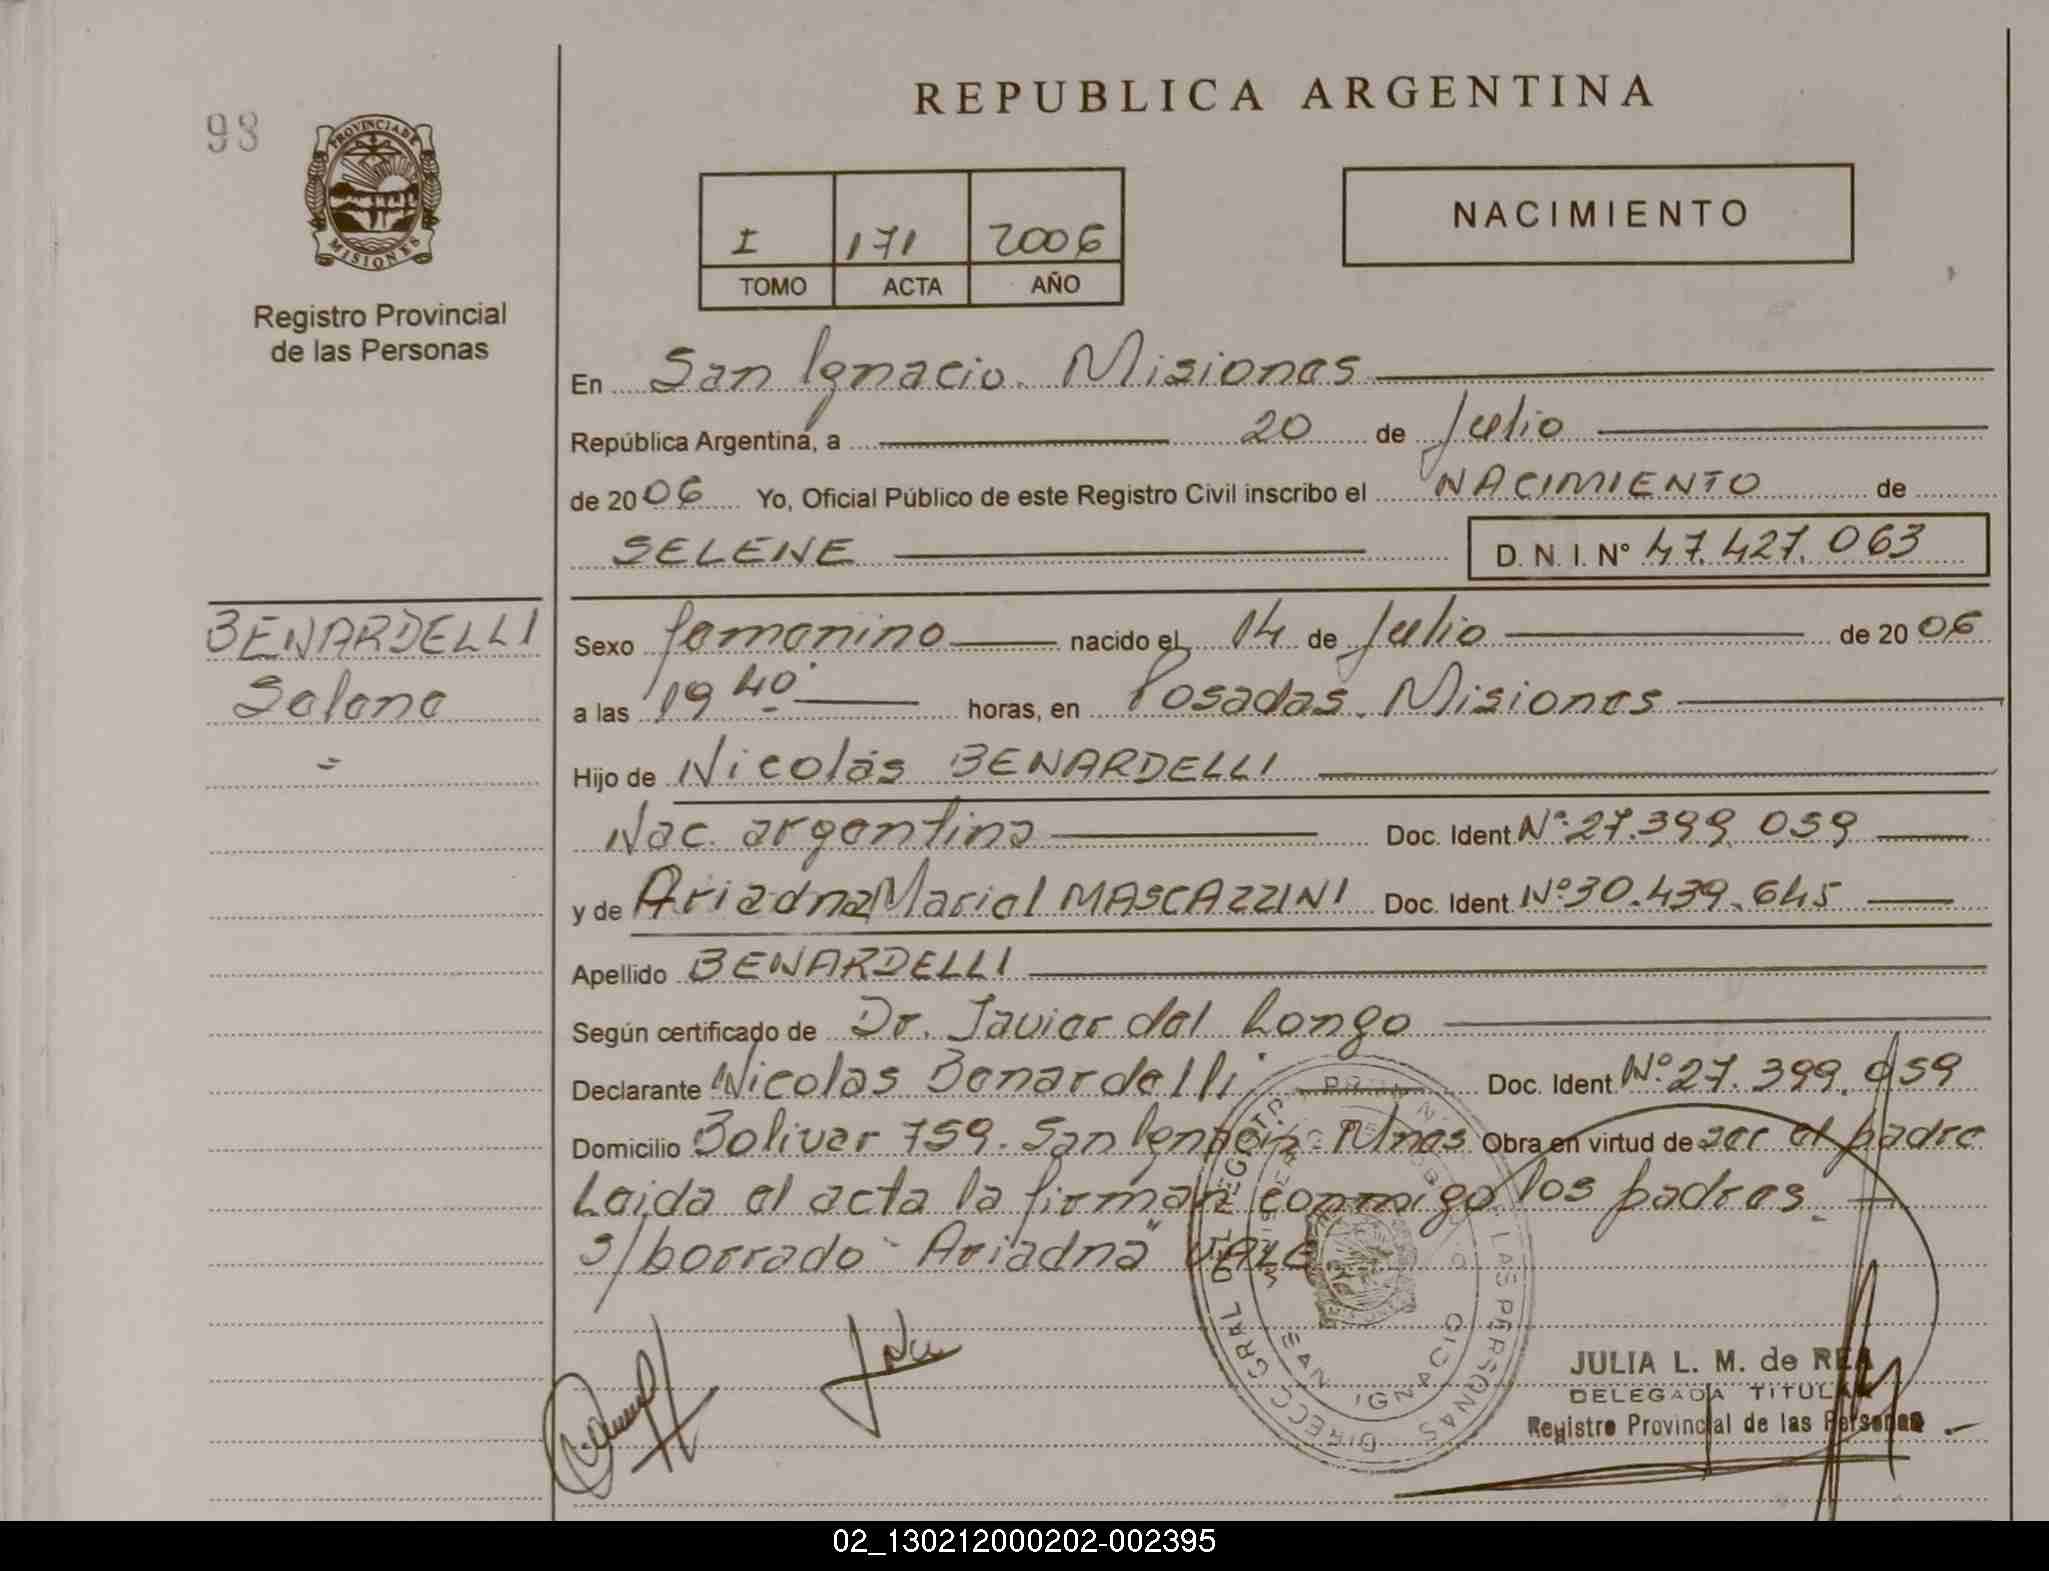 REPUBLICA ARGENTINA
93
PROVINCIA DE
MISIONES
Registro Provincial
de las Personas
I 171 2006
TOMO ACTA AÑO
NACIMIENTO
En San Ignacio. Misiones
República Argentina, a 20 de Julio
de 2006 Yo, Oficial Público de este Registro Civil inscribo el NACIMIENTO de
SELENE D. N. I. N° 47.427.063
BENARDELLI
Selene
=
Sexo femenino nacido el 14 de Julio de 2006
a las 19 40 horas, en Posadas. Misiones
Hijo de Nicolás BENARDELLI
Nac. argentina Doc. Ident. N°:27.399.059
y de Ariadna Mariel MASCAZZINI Doc. Ident. N°:30.439.645
Apellido BENARDELLI
Según certificado de Dr. Javier del Longo
Declarante Nicolas Benardelli Doc. Ident. N°:27.399.059
Domicilio Bolivar 759. San Ignacio. Mnes Obra en virtud de ser el padre
Leida el acta la firman conmigo los padres.
s/borrado "Ariadna" VALE
DIRECC GRAL DEL REGISTRO PROV. DE LAS PERSONAS
SAN IGNACIO
JULIA L. M. de REA
DELEGADA TITULAR
Registro Provincial de las Personas
02_130212000202-002395